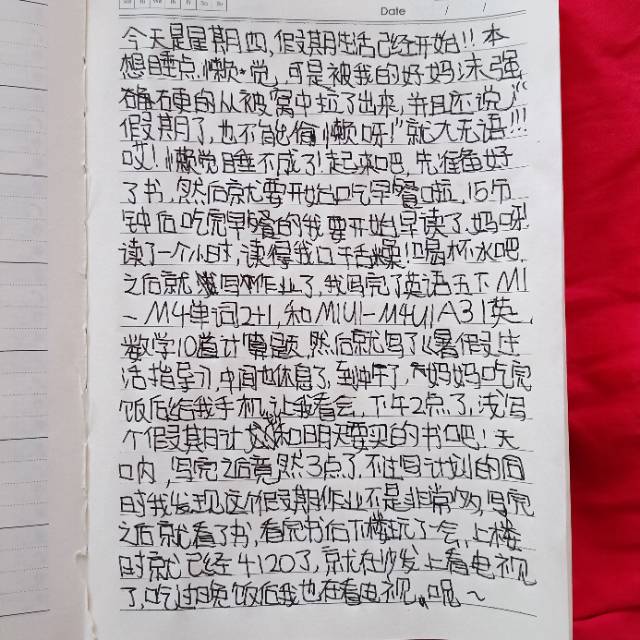 Date / /
今天是星期四,假期生活已经开始!!本
想睡点懒觉,可是被我的好妈沫强
硬的从被窝中拉了出来,并且还说,"
假期了,也不能偷懒呀!"就大无语!!!
哎!懒觉睡不成了!起来吧,先准备好
了书,然后就要开始吃早餐啦,15分
钟后吃完早餐的我要开始早读了.妈呀
读了一个小时,读得我口干舌燥!喝杯水吧.
之后就写作业了,我写完了英语五下M1
~M4单词2+1,和M1U1-M4U1A31英,
数学10道计算题,然后就写了《暑假生
活指导》,中间也休息了,到中午了,妈妈吃完
饭后给我手机,让我看会,下午2点了,该写
个假期计划和明天要买的书吧!天
呐,写完之后竟然3点了,不过写计划的同
时我发现这个假期作业不是非常多,写完
之后就看了书,看完书后下楼玩了一会,上楼
时就已经4:20了,就在沙发上看电视
了,吃过晚饭后我也在看电视。呃~